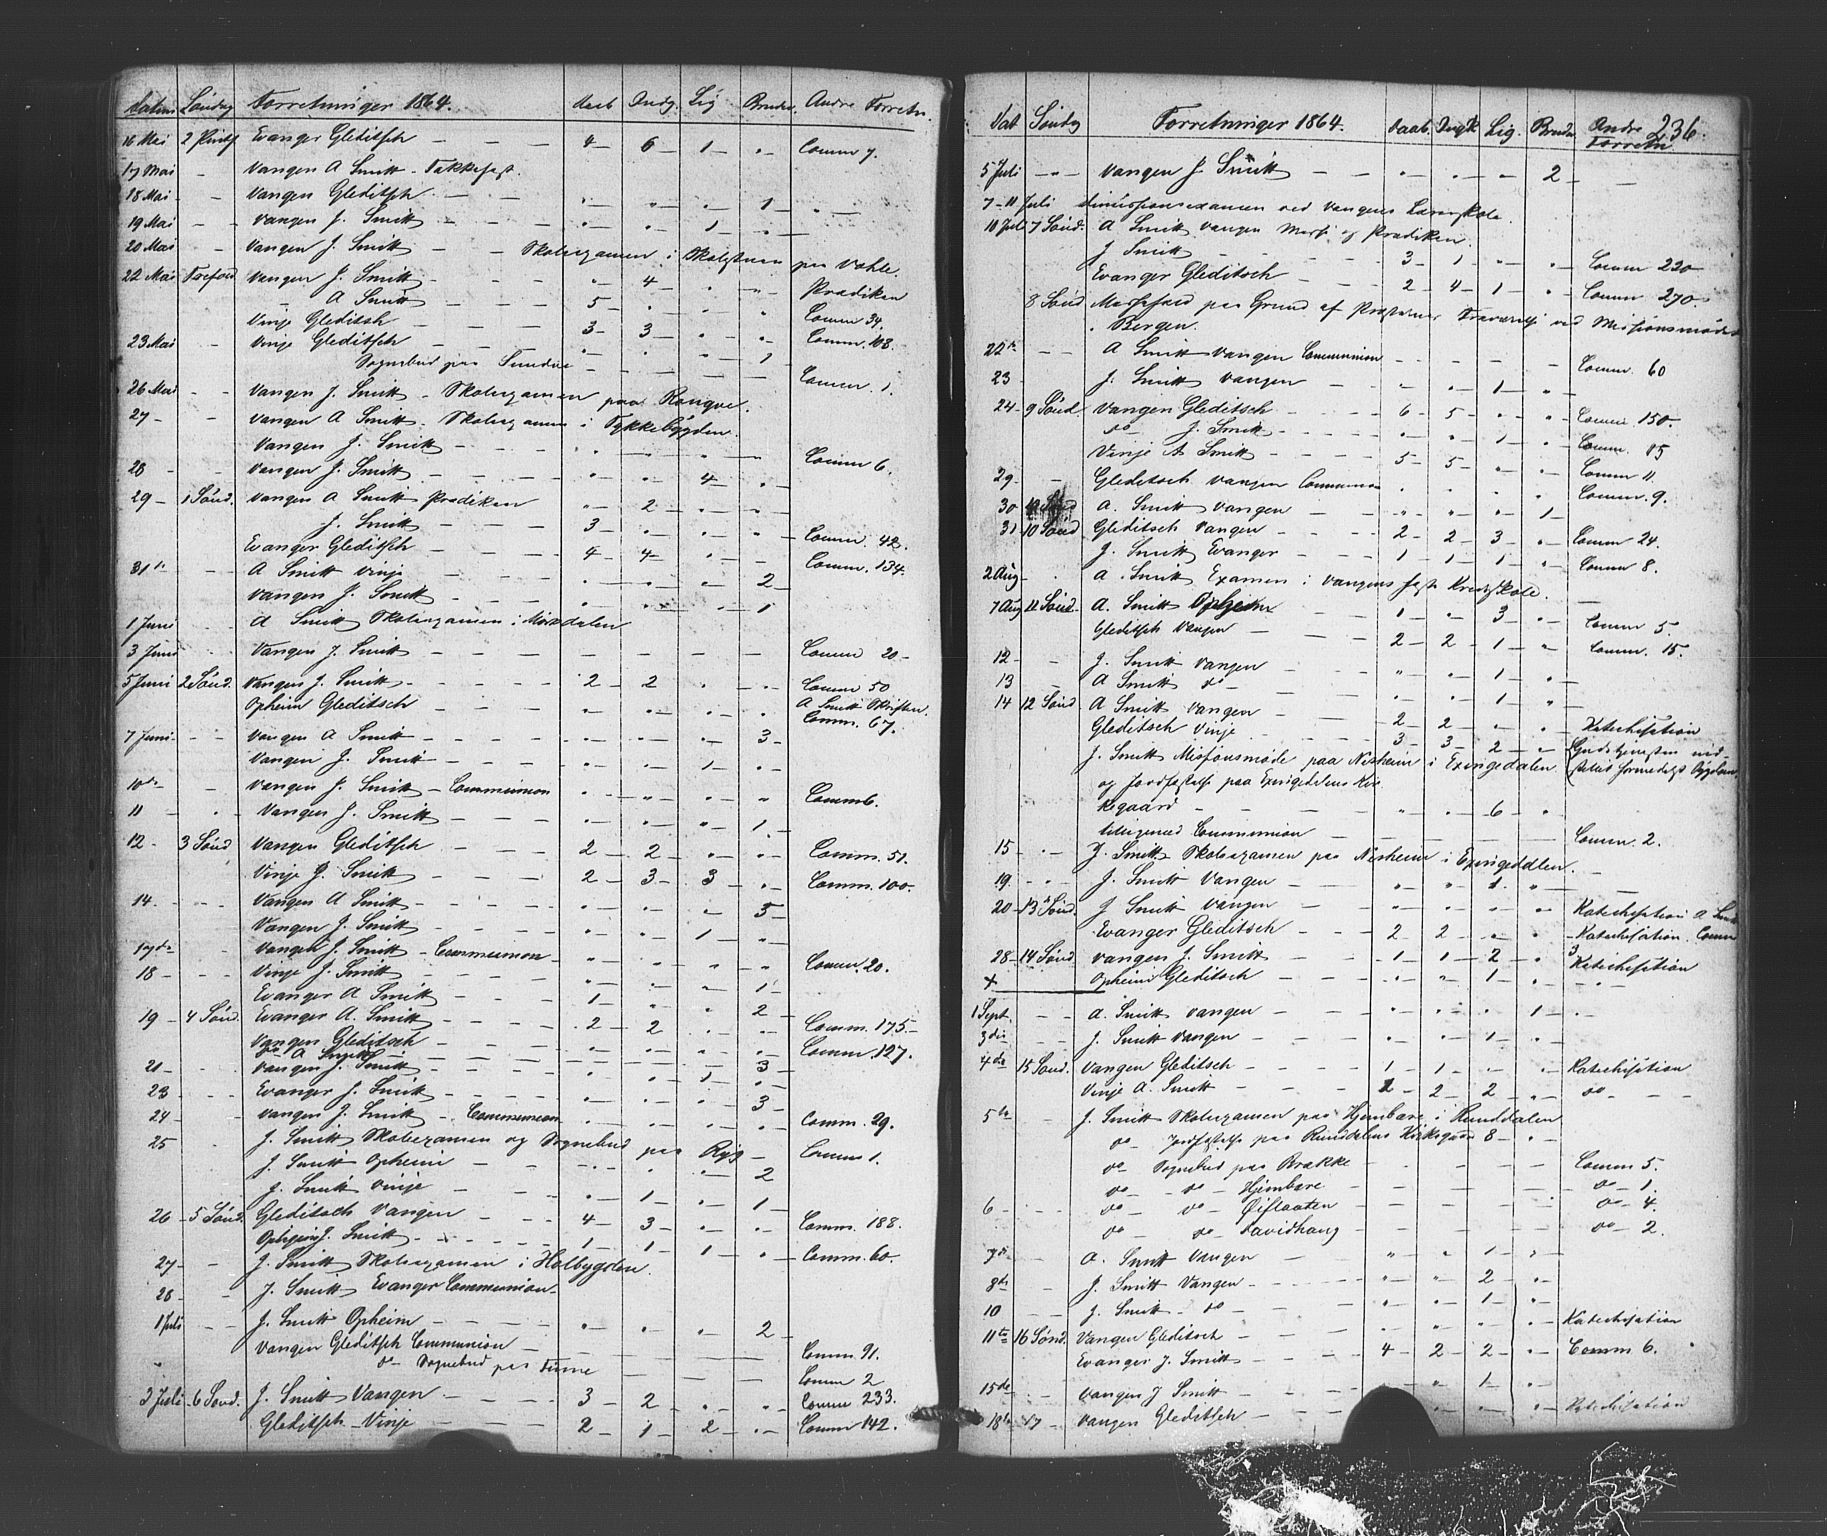 Datum Söndag Forretninger 1864. Daab Indg. Lig Brudev. Andre Forretn.
16 Mai 2 Pintsd Evanger Gleditsch — 4 — 6 — 1 — „ — Comm 7.
17 Mai — Vangen A Smitt — Takkefest.
18 Mai — Vangen Gleditsch — „ — „ — „ — 1 — „
19 Mai — Vangen J. Smitt — „ — „ — 1 — „ —
20 Mai — Vangen J. Smitt — Skoleexamen i Skolestuen paa Vohle.
22 Mai Trefold Vangen J. Smitt — „ — 4 — „ — „ — Prædiken
— A Smitt — 5 — „ — „ — „ Comm 34.
Vinje Gleditsch — 3 — 3 — „ — „ Comm. 108.
23 Mai — Vinje Gleditsch — „ — „ — „ — 1
Sognebud paa — Comm. 1.
26 Mai — Vangen J. Smitt — Skoleexamen paa Rongve.
27 — Vangen A Smitt — Skoleexamen i Tykkebygden.
Vangen J. Smitt — Comm 6.
28 — Vangen J. Smitt — „ — „ — 4 — „
29 — 1 Sönd. Vangen A Smitt Prædiken „ — 2 — „ — „
J. Smitt — 3 — „ — „ — „ — Comm. 42.
Evanger Gleditsch — 4 — 4 — „ — „ — Comm. 134.
31te — A Smitt Vinje — „ — „ — „ — 2 —
Vangen J. Smitt — „ — „ — „ — 1
1 Juni — A Smitt Skoleexamen i
3 Juni — Vangen J. Smitt — — — — — Comm 20 —
5 Juni 2 Sönd. Vangen J. Smitt — 2 — 2 — „ — „ — Comm 50
Opheim Gleditsch — „ — „ — „ — „ A Smitt Skriften. Comm. 67.
7 Juni — Vangen A Smitt — „ — „ — „ — 3 —
Vangen J. Smitt — „ — „ — 1 — „
10de — Vangen J. Smitt — Communion „ — „ — „ — „ Comm 6.
11 — Vangen J. Smitt — „ — „ — „ — 1 —
12 — 3 Sönd Vangen Gleditsch — 2 — 2 — „ — „ — Comm. 51.
Vinje J. Smitt — 2 — 3 — 3 — „ — Comm. 100 —
14 — Vangen A Smitt — „ — „ — „ — 5 —
Vangen J. Smitt — „ — „ — 1 — „
17de — Vangen J. Smitt — Communion „ — „ — „ — „ Comm. 20.
18 — Vinje J. Smitt — „ — „ — „ — 1 —
Evanger A Smitt — 1 — „ — „ — 2 —
19 — 4 Sönd. Evanger A. Smitt — 2 — 2 — „ — „ — Comm. 175 —
Vangen Gleditsch — „ — „ — „ — „ Comm. 127.
do A Smitt — — — — 3 —
21 — Vangen J. Smitt — „ — „ — 1 — „
23 — Evanger J. Smitt — „ — „ — „ — 3 —
24 — Vangen J. Smitt — Communion „ — „ — „ — „ Comm. 29.
25 J. Smitt Skoleexamen og Sognebud paa — Comm 1.
J. Smitt Opheim — „ — „ — „ — 2
J. Smitt Vinje — „ — 1 — „ — 1 —
26 — 5 Sönd. Gleditsch Vangen — 4 — 3 — „ — „ — Comm. 188.
Opheim J. Smitt — 1 — 1 — 1 — „ — Comm. 60 —
27 — J. Smitt Skoleexamen i Holbygden.
28 — J. Smitt Evanger Communion —
1 Juli — J. Smitt Opheim — „ — „ — „ — 2 —
Vangen Gleditsch Communion — Comm. 91.
do — Sognebud paa Finne — Comm 2
3 Juli 6 Sönd. J. Smitt Vangen — 3 — 2 — „ — „ — Comm 233.
Gleditsch — Vinje — 2 — 1 — 2 — „ — Comm 142.
Dat Söndag Forretninger 1864. Daab. Indg. Lig. Brudev Andre Forretn 236.
5 Juli — „ — Vangen J Smitt — „ — „ — „ — 2 —
7 — 11 Juli Dimissionsexamen ved Vangens Lærerskole.
10 Juli 7 Sönd. A Smitt Vangen Messe og Prædiken.
J Smitt — 3 — 1 — „ — „ — Comm 220 —
Evanger Gleditsch — 2 — 4 — 1 — „ — Comm 270 —
8 Sönd Messefald paa Grund af Præsternes Fraværelse ved Missionsmödet
i Bergen.
22de — A Smitt Vangen Communion — Comm. 60
23 — J. Smitt Vangen — „ — „ — 1 — „
24 — 9 Sönd. Vangen Gleditsch — 6 — 5 — „ — „ — Comm 150.
do J. Smitt — „ — „ — 1 — „ Comm. 15
Vinje A Smitt — 5 — 5 — „ — „ Comm. 11
29 — Gleditsch Vangen Communion „ — „ — „ — „ Comm. 9.
30 A. Smitt Vangen — „ — „ — „ — 1 —
31 10 Sönd Gleditsch Vangen — 2 — 2 — 3 — „ — Comm 24.
J. Smitt Evanger — 1 — 1 — 1 — „ Comm 8.
2 Aug — A. Smitt Examen i Vangens faste Kredsskole.
7 Aug 11 Sönd. A. Smitt Opheim — 1 — „ — 3 — „ — Comm 5.
Gleditsch Vangen — 2 — 2 — 1 — „ — Comm. 15.
12 — J. Smitt Vangen — „ — „ — 1 — „
13 — A Smitt do — „ — „ — 1 — „
14 12 Sönd A Smitt Vangen — 2 — 2 — „ — „ Katechisation
Gleditsch Vinje — 3 — 3 — 2 — „
J. Smitt Missionsmöde paa Nesheim i Exingedalen (Gudstjenesten
og Jordfæstelse paa Exingedalens Kir
kegaard — „ — „ — 6 — „
tilligemed Communion — — — — Comm. 2.
15 — J. Smitt Skoleexamen paa Nesheim i Exingedalen.
19 — J. Smitt Vangen — „ — „ — 1 — „
20 — 13 Sönd. J Smitt Vangen — „ — „ — „ — „ Katechisation A Smitt
Evanger Gleditsch — 2 — 2 — „ — „ — Katechisation. Comm 3
28 — 14 Sönd Vangen J. Smitt — 1 — 1 — 2 — „ Katechisation
+ Opheim Gleditsch — „ — „ — 1 — „
1 Sept. — A. Smitt Vangen — „ — „ — „ — 1 —
3die — J. Smitt Vangen — „ — „ — 1 — „
4de 15 Sönd. Vangen Gleditsch — 1 — 1 — „ — „ Katechisation
Vinje A. Smitt — 2 — 2 — 2 — „ — do — —
5te J. Smitt Skoleexamen paa Hjembare i Runddalen
do — Jordfæstelse paa Runddalens Kirkegaard 8 — „ —
do — Sognebud paa Brække — Comm 5.
do — do — Hjembare — do — 1.
6 — do — do — Öiflaaten — do — 4.
do — do — — do — 2.
7de — A. Smitt Vangen — „ — „ — 1 — „
8de J. Smitt Vangen — „ — „ — 2 — „
10 — J. Smitt — do — „ — „ — 1 — „
11te 16 Sönd. Vangen Gleditsch — „ — „ — „ — „ Katechisation
Evanger J. Smitt — 4 — 2 — 2 — „ — Comm 6.
15de — Vangen J Smitt — „ — 1 — „
18de 17 — Vangen Gleditsch — „ — „ — „ Katechisation